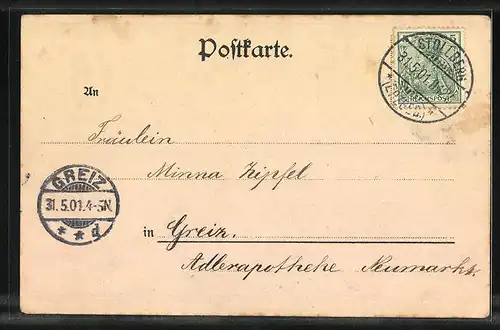 Postkarte.
STOLLBERG
31.5.01.
(ERZGEB.)
An
Fräulein
Minna Zipfel
GREIZ
31.5.01.4-5N
d
in Greiz.
Adlerapotheke Neumarkt.